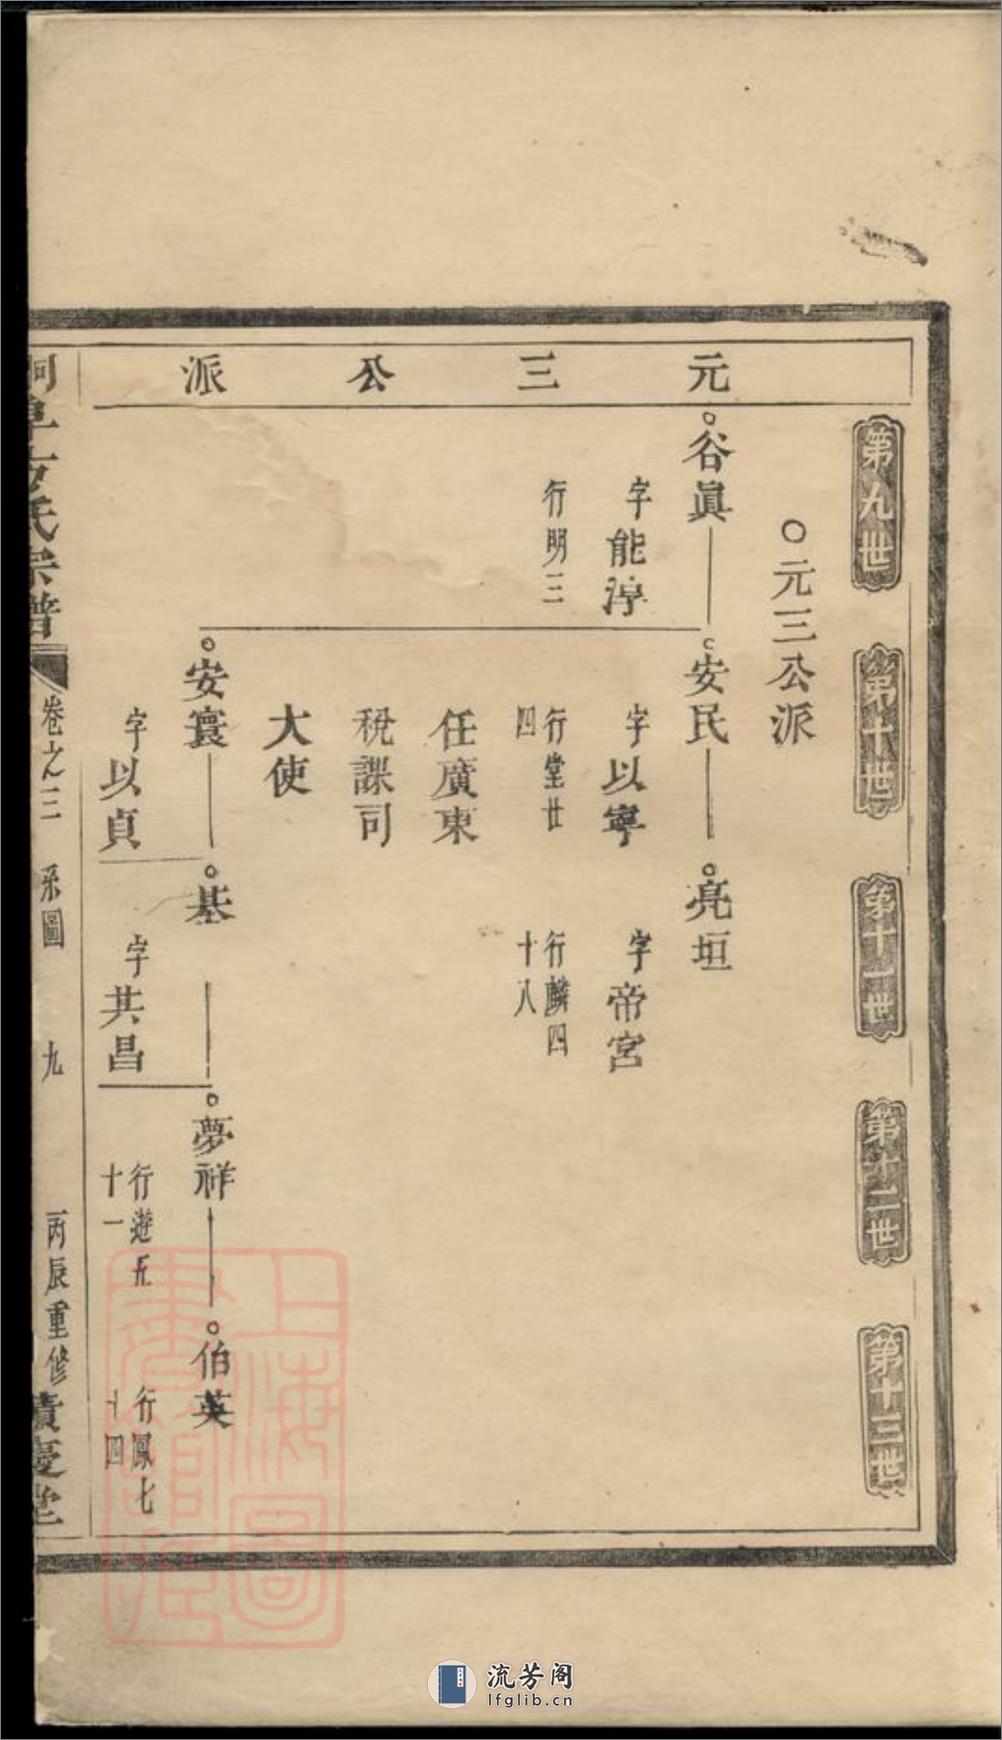 元三公派
第九世
第十世
第十一世
第十二世
第十三世
元三公派
谷眞
字能淳
行明三
安民
字以寧
行堂廿
四
任廣東
稅課司
大使
亮垣
字帝宮
行麟四
十八
安寰
字以貞
基
字共昌
夢祥
行遊五
十一
伯英
行鳳七
十四
氏宗譜
卷之三
系圖
九
丙辰重修
慶堂
上海圖
書館藏
流芳阁
lfglib.cn